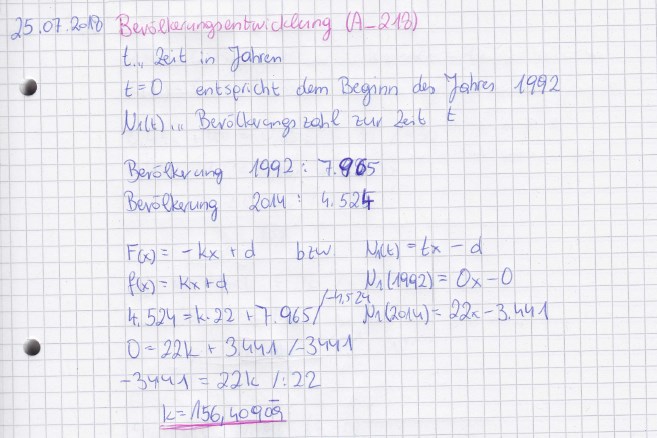 25.07.2018 Bevölkerungsentwicklung (A_218)
t... Zeit in Jahren
t=0 entspricht dem Beginn des Jahres 1992
N₁(t)... Bevölkerungszahl zur Zeit t
Bevölkerung 1992: 7.965
Bevölkerung 2014: 4.524
F(x) = -kx + d bzw N₁(t) = tx - d
f(x) = kx + d N₁(1992) = 0x - 0
4.524 = k·22 + 7.965 /-4.524 N₁(2014) = 22x - 3.441
0 = 22k + 3441 /-3441
-3441 = 22k /:22
k = 156,40909